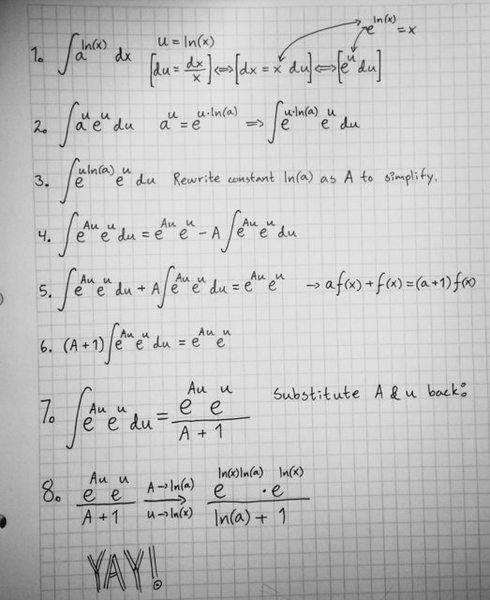 1. ∫a^ln(x) dx   u = ln(x)   e^ln(x) = x
[du = dx/x] ⟺ [dx = x du] ⟺ [e^u du]
2. ∫a^u e^u du   a^u = e^(u·ln(a)) ⇒ ∫e^(u·ln(a)) e^u du
3. ∫e^(u ln(a)) e^u du   Rewrite constant ln(a) as A to simplify.
4. ∫e^(Au) e^u du = e^(Au) e^u - A ∫e^(Au) e^u du
5. ∫e^(Au) e^u du + A∫e^(Au) e^u du = e^(Au) e^u   → af(x) + f(x) = (a+1)f(x)
6. (A+1)∫e^(Au) e^u du = e^(Au) e^u
7. ∫e^(Au) e^u du = (e^(Au) e^u)/(A + 1)   Substitute A & u back:
8. (e^(Au) e^u)/(A + 1)   A→ln(a)   u→ln(x)   (e^(ln(x)ln(a)) · e^ln(x))/(ln(a) + 1)
YAY!